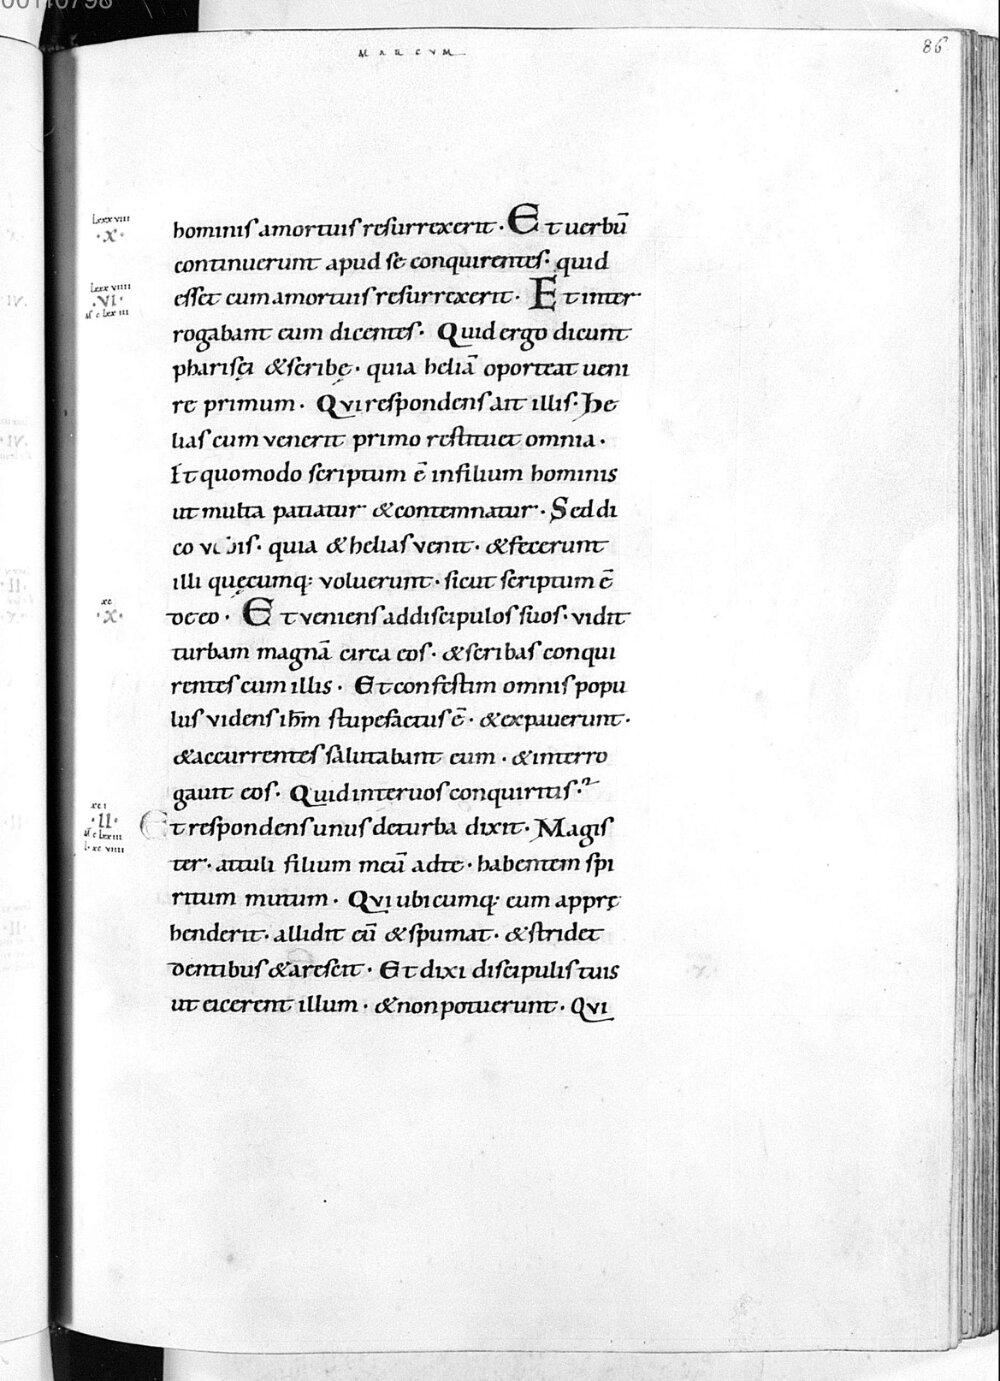 MARCUM
86
Lxxxviii
·X·
hominis amortuis resurrexerit · Et uerbū
continuerunt apud se conquirentes · quid
Lxxxviiii
·VI·
esset cum amortuis resurrexerit · Et inter
rogabant eum dicentes · Quid ergo dicunt
pharisęi & scribę · quia heliā oporteat ueni
re primum · Qui respondens ait illis · He
lias cum venerit primo restituet omnia ·
Et quomodo scriptum ē in filium hominis
ut multa patiatur & contemnatur · Sed di
co vobis · quia & helias venit · & fecerunt
illi quęcumq; voluerunt · sicut scriptum ē
xc
·X·
de eo · Et veniens ad discipulos suos · vidit
turbam magnā circa eos · & scribas conqui
rentes cum illis · Et confestim omnis popu
lus videns ihm̄ stupefactus ē · & expauerunt ·
& accurrentes salutabant eum · & interro
gauit eos · Quid inter uos conquiritis ·
xci
·II·
Et respondens unus de turba dixit · Magis
ter · attuli filium meū ad te · habentem spi
ritum mutum · Qui ubicumq; eum apprę
henderit · allidit eū & spumat · & stridet
dentibus & arescit · Et dixi discipulis tuis
ut eicerent illum · & non potuerunt · Qui